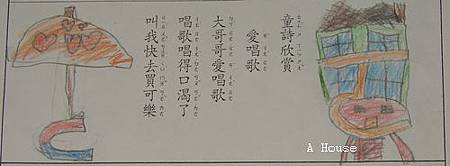 童詩欣賞
愛唱歌
大哥哥愛唱歌
唱歌唱得口渴了
叫我快去買可樂
A House